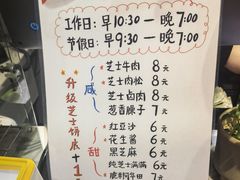 工作日：早10:30—晚7:00
节假日：早9:30—晚7:00
咸
芝士牛肉 8元
芝士肉松 8元
芝士卤肉 8元
葱香臊子 7元
甜
红豆沙 6元
花生酱 7元
黑芝麻 6元
纯芝士满满 6元
升级芝士饼底+1元